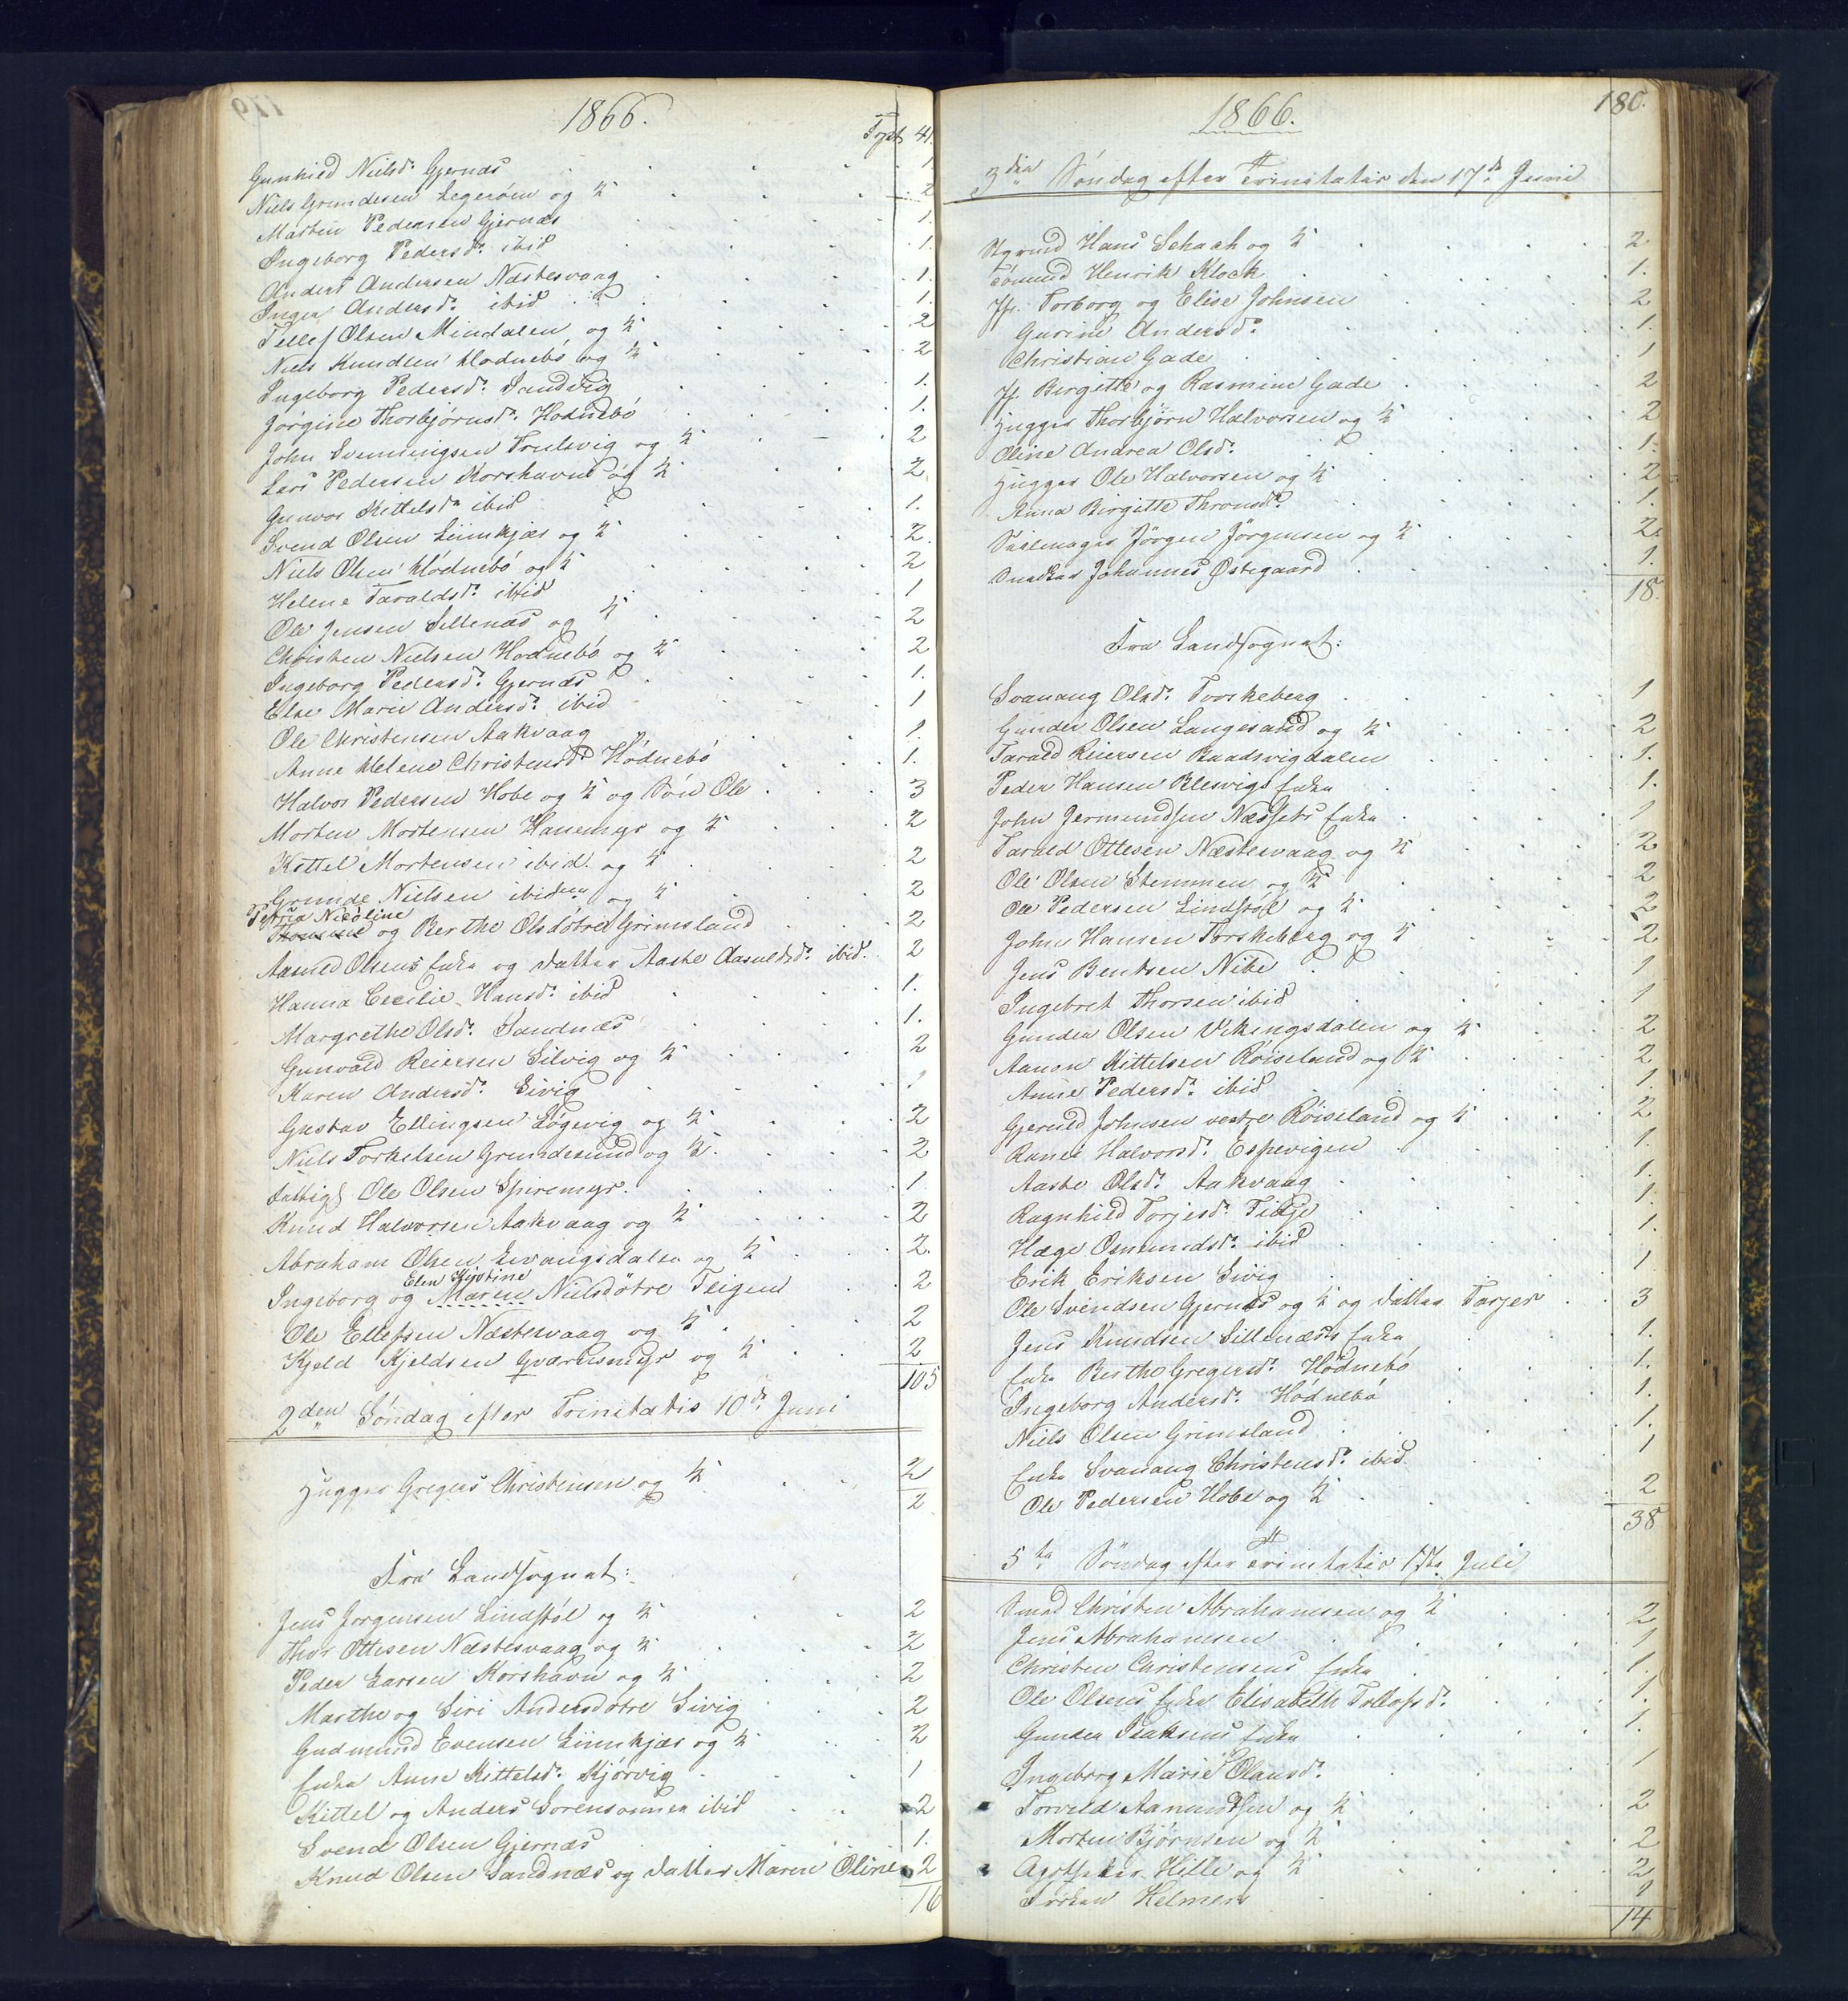 1866.
Tpt 41.
Gunhild Nielsdr. Gjernæs 1
Niels Grundesen Legerøen og K 2
Martin Pedersen Gjernæs 1.
Ingeborg Pedersdr. ibid 1.
Anders Andersen Næstesvaag 1.
Inger Andersdr. ibid 1.
Tellef Olsen Mindalen og K 2
Niels Knudsen Hødnebö og K 2
Ingeborg Pedersdr. Sandvig 1.
Jørgine Thorbjørnsdr. Hødnebö 1.
John Svenningsen Trulsvig og K 2
Lars Pedersen Korshavn og K 2
Gunvor Kittelsdr ibid 1.
Svend Olsen Liimkjær og K 2.
Niels Olsen Hødnebö og K 2
Helene Taraldsdr. ibid 1
Ole Jensen Sillenæs og K 2
Christen Nielsen Hødnebö og K 2
Ingeborg Pedersdr. Gjernæs 1.
Else Marie Andersdr. ibid 1
Ole Christensen Aakvaag 1.
Anne Helene Christensdr. Hödnebö 1.
Halvor Pedersen Hobe og K og Sön Ole 3
Morten Mortensen Hanemyr og K 2
Kittel Mortensen ibid. og K 2
Grunde Nielsen ibidem og K 2
Petria Nicoline
og Berthe Olsdötre Grimsland 2
Aasuld Olsens Enke og Datter Aaste Aasuldsdr. ibid. 2
Hanna Cecilie Hansdr. ibid 1.
Margrethe Olsdr. Sandnæs 1.
Gunvald Reiersen Silvig og K 2
Karen Andersdr. Sivig 1
Gustav Ellingsen Løgevig og K 2
Niels Torkelsen Grundesund og K. 2
Fattigl Ole Olsen Spiremyr. 1.
Knud Halvorsen Aakvaag og K 2
Abraham Olsen Levangsdalen og K 2.
Elen Kjistine
Ingeborg og Maren Nielsdötre Teigen 2
Ole Ellefsen Næstesvaag og K 2
Kjeld Kjeldsen Qværnsmyr og K 2
105
2den Söndag efter Trinitatis 10de Juni
Hugger Gregers Christensen og K 2
2
Fra Landsognet:
Jens Jørgensen Lindstöl og K 2
Thor Ottesen Næstesvaag og K 2
Peder Larsen Korshavn og K 2
Marthe og Siri Andersdötre Sivig 2
Gudmund Evensen Liimkjær og K 2
Enke Anne Kittelsdr. Kjörvig 1
Kittel og Anders Sorensønner ibid 2
Svend Olsen Gjernæs 1.
Knud Olsen Sandnæs og Datter Maren Oline 2
16
1866.
180.
3die Söndag efter Trinitatis den 17de Juni
Hans Schach og K 2
Henrik Klock 1.
Jfr. Torborg og Elise Johnsen 2
Gurine Andersdr. 1.
Christian Gade 1
Jf. Birgitte og Rasmine Gade 2
Hugger Thorbjørn Halvorsen og K 2
Oline Andrea Olsdr. 1.
Hugger Ole Halvorsen og K 2
Anna Birgitte Thronsdr. 1.
Seilmager Jörgen Jörgensen og K 2.
Snedker Johannes Østegaard 1.
18.
Fra Landsognet:
Svanaug Olsdr. Torskeberg 1
Gunder Olsen Langesand og K 2
Tarald Reiersen Baadsvigdalen 1.
Peder Hansen Blesvigs Enke 1.
John Jermundsen Næssets Enke 1
Tarald Ottesen Næstesvaag og K 2
Ole Olsen Stemmen og K 2
Ole Pedersen Lindstöl og K 2
John Hansen Torskeberg og K 2
Jens Bentsen Nibe 1
Ingebret Thorsen ibid 1
Gunder Olsen Vikingsdalen og K 2
Aanon Kittelsen Röiseland og K 2
Anne Pedersdr. ibid 1.
Gjeruld Johnsen vestre Röiseland og K 2
Ranei Halvorsdr. Espevigen 1.
Aaste Olsdr. Aakvaag 1.
Ragnhild Torjesdr. Tidje 1.
Hæge Osmundsdr. ibid 1.
Erik Eriksen Sivig 1
Ole Svendsen Gjernæs og K og Datter Tarjer 3
Jens Knudsen Sillenæs's Enke 1.
Enke Berthe Gregersdr. Hödnebö 1.
Ingeborg Andersdr. Hödnebö 1.
Niels Olsen Grimsland 1.
Enke Svanaug Christensdr. ibid. 1
Ole Pedersen Hobe og K 2
38
5te Söndag efter Trinitatis 1ste Juli
Smed Christen Abrahamsen og K 2
Jens Abrahamsen 1
Christen Christensens Enke 1.
Ole Olsens Enke Elisabeth Tollefsdr. 1.
Gunder Isaksens Enke 1.
Ingeborg Marie Olausdr. 1
Torvild Aanundsen og K 2
Morten Bjørnsen og K 2
Apotheker Hille og K 2
Frøken Helmers 1
14